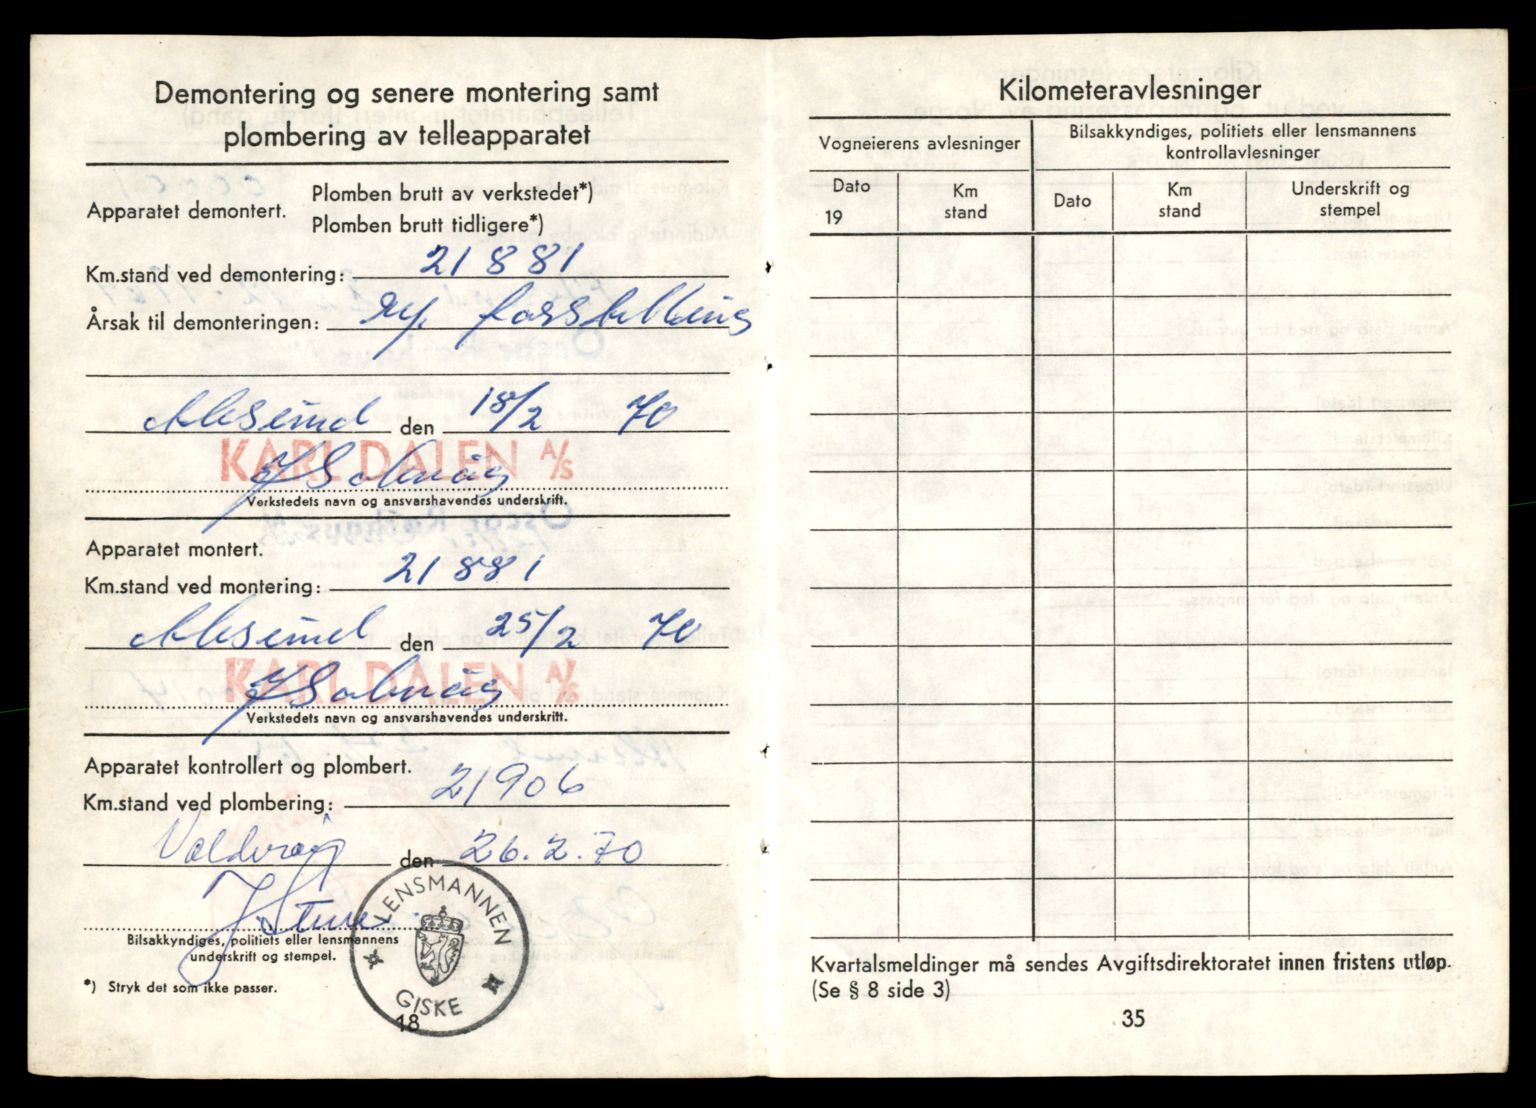 Demontering og senere montering samt
plombering av telleapparatet
Apparatet demontert.
Plomben brutt av verkstedet*)
Plomben brutt tidligere*)
Km.stand ved demontering: 21881
Årsak til demonteringen: forstilling
Ålesund den 18/2 70
KARL DALEN A/S
Verkstedets navn og ansvarshavendes underskrift.
Apparatet montert.
Km.stand ved montering: 21881
Ålesund den 25/2 70
KARL DALEN A/S
Verkstedets navn og ansvarshavendes underskrift.
Apparatet kontrollert og plombert.
Km.stand ved plombering: 21906
Valderøy den 26.2.70
LENSMANNEN
GISKE
Bilsakkyndiges, politiets eller lensmannens
underskrift og stempel.
*) Stryk det som ikke passer.
18
Kilometeravlesninger
Vogneierens avlesninger
Bilsakkyndiges, politiets eller lensmannens
kontrollavlesninger
Dato
19
Km
stand
Dato
Km
stand
Underskrift og
stempel
Kvartalsmeldinger må sendes Avgiftsdirektoratet innen fristens utløp.
(Se § 8 side 3)
35